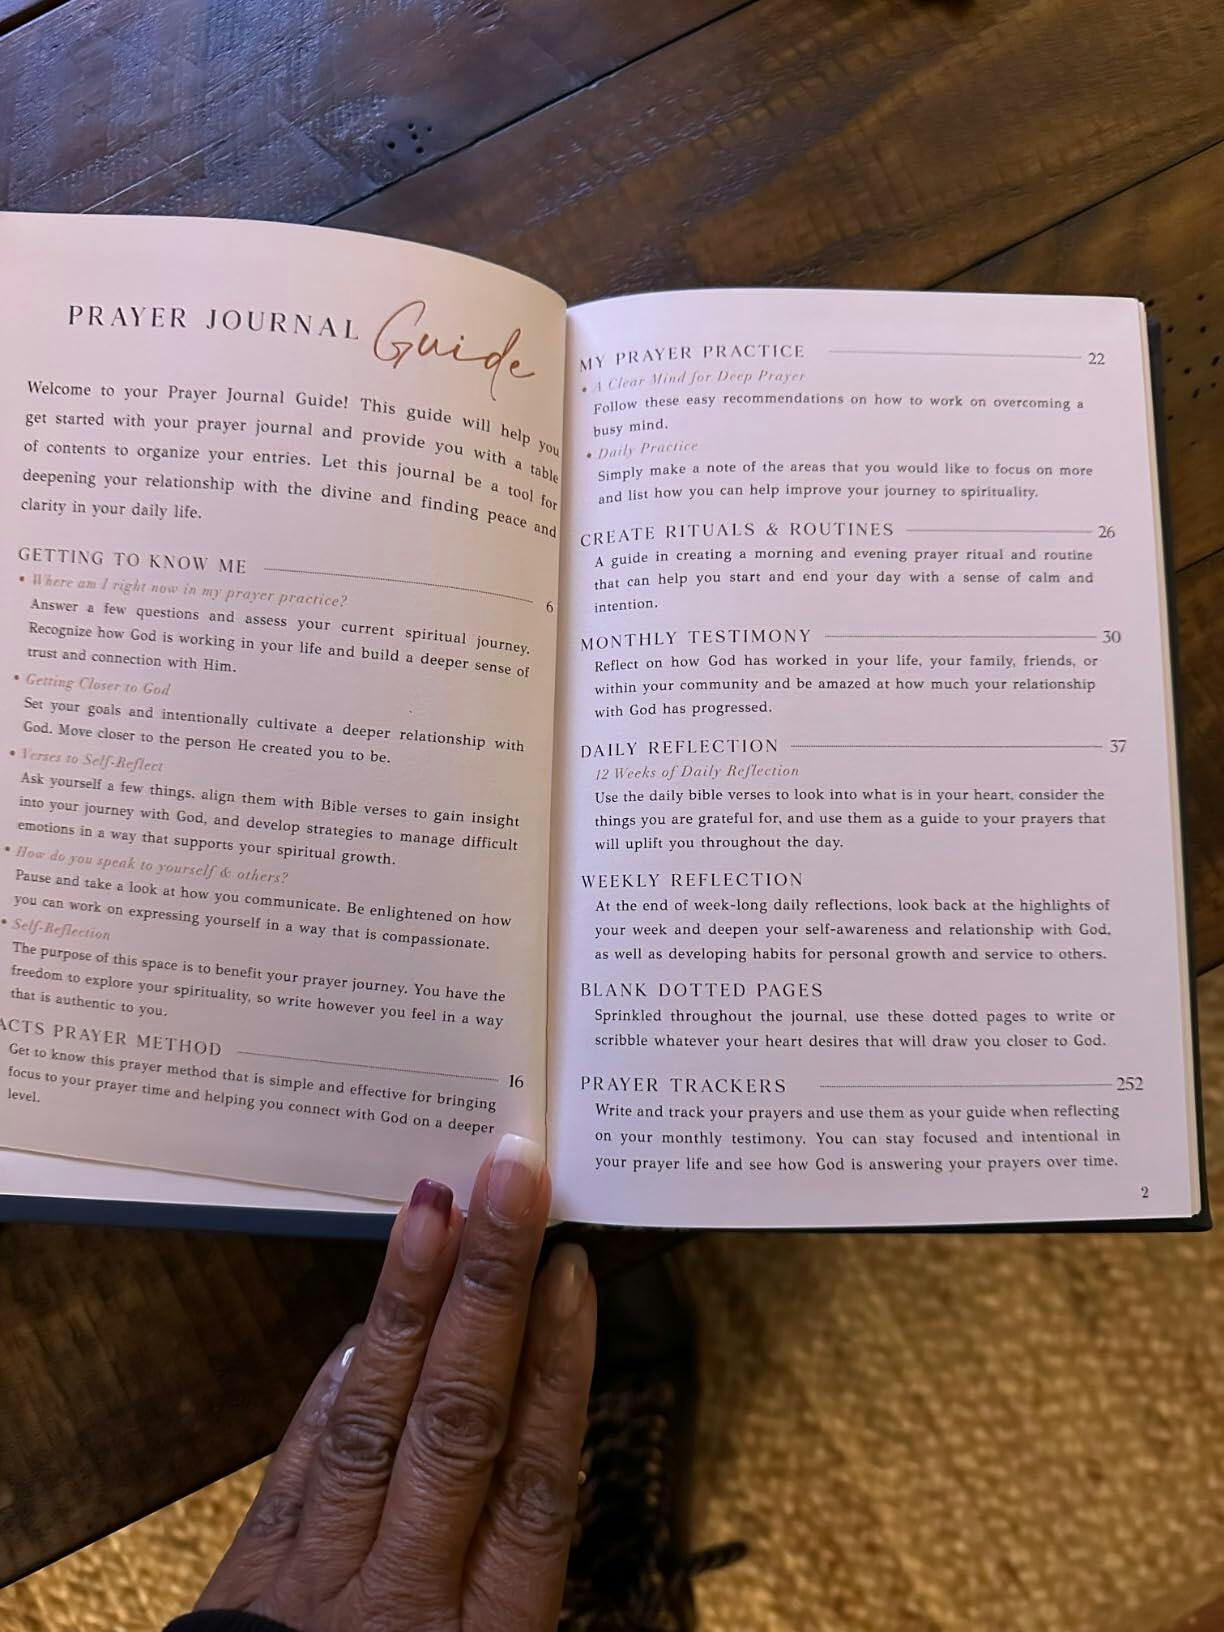 PRAYER JOURNAL Guide
Welcome to your Prayer Journal Guide! This guide will help you
get started with your prayer journal and provide you with a table
of contents to organize your entries. Let this journal be a tool for
deepening your relationship with the divine and finding peace and
clarity in your daily life.
GETTING TO KNOW ME 6
• Where am I right now in my prayer practice?
Answer a few questions and assess your current spiritual journey.
Recognize how God is working in your life and build a deeper sense of
trust and connection with Him.
• Getting Closer to God
Set your goals and intentionally cultivate a deeper relationship with
God. Move closer to the person He created you to be.
• Verses to Self-Reflect
Ask yourself a few things, align them with Bible verses to gain insight
into your journey with God, and develop strategies to manage difficult
emotions in a way that supports your spiritual growth.
• How do you speak to yourself & others?
Pause and take a look at how you communicate. Be enlightened on how
you can work on expressing yourself in a way that is compassionate.
• Self-Reflection
The purpose of this space is to benefit your prayer journey. You have the
freedom to explore your spirituality, so write however you feel in a way
that is authentic to you.
ACTS PRAYER METHOD 16
Get to know this prayer method that is simple and effective for bringing
focus to your prayer time and helping you connect with God on a deeper
level.
MY PRAYER PRACTICE 22
• A Clear Mind for Deep Prayer
Follow these easy recommendations on how to work on overcoming a
busy mind.
• Daily Practice
Simply make a note of the areas that you would like to focus on more
and list how you can help improve your journey to spirituality.
CREATE RITUALS & ROUTINES 26
A guide in creating a morning and evening prayer ritual and routine
that can help you start and end your day with a sense of calm and
intention.
MONTHLY TESTIMONY 30
Reflect on how God has worked in your life, your family, friends, or
within your community and be amazed at how much your relationship
with God has progressed.
DAILY REFLECTION 37
12 Weeks of Daily Reflection
Use the daily bible verses to look into what is in your heart, consider the
things you are grateful for, and use them as a guide to your prayers that
will uplift you throughout the day.
WEEKLY REFLECTION
At the end of week-long daily reflections, look back at the highlights of
your week and deepen your self-awareness and relationship with God,
as well as developing habits for personal growth and service to others.
BLANK DOTTED PAGES
Sprinkled throughout the journal, use these dotted pages to write or
scribble whatever your heart desires that will draw you closer to God.
PRAYER TRACKERS 252
Write and track your prayers and use them as your guide when reflecting
on your monthly testimony. You can stay focused and intentional in
your prayer life and see how God is answering your prayers over time.
2